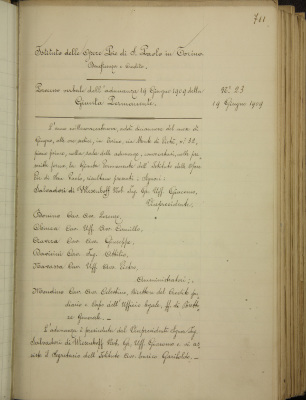 711
Istituto delle Opere Pie di S. Paolo in Torino
Beneficenza e Credito.
Processo verbale dell'adunanza 19 Giugno 1929 della
Giunta Permanente.
N.º 23
19 Giugno 1929
L'anno millenovecentoventinove, addì diciannove del mese di
Giugno, alle ore sedici, in Torino, via Monte di Pietà, n.º 32,
primo piano, nella sala delle adunanze, convocatasi, nelle
forme, la Giunta Permanente dell'Istituto delle Opere
Pie di San Paolo, risultano presenti i Signori:
Salvadori di Wiesenhoff Nob. Ing. Gr. Uff. Giacomo,
Vicepresidente;
Borino Cav. Avv.
Cav. Uff. Avv. Camillo,
Cav. Avv. Giuseppe,
Cav. Ing. Attilio,
Cav. Uff. Avv. Pietro,
Amministratori;
Mondino Cav. Avv. Celestino, Direttore del Credito Fon-
diario e Capo dell'Ufficio legale, ff. di Diretto-
re Generale. —
L'adunanza è presieduta dal Vicepresidente Signor Ing.
Salvadori di Wiesenhoff Nob. Gr. Uff. Giacomo e vi as-
siste il Segretario dell'Istituto Avv. Enrico Garibaldi. —